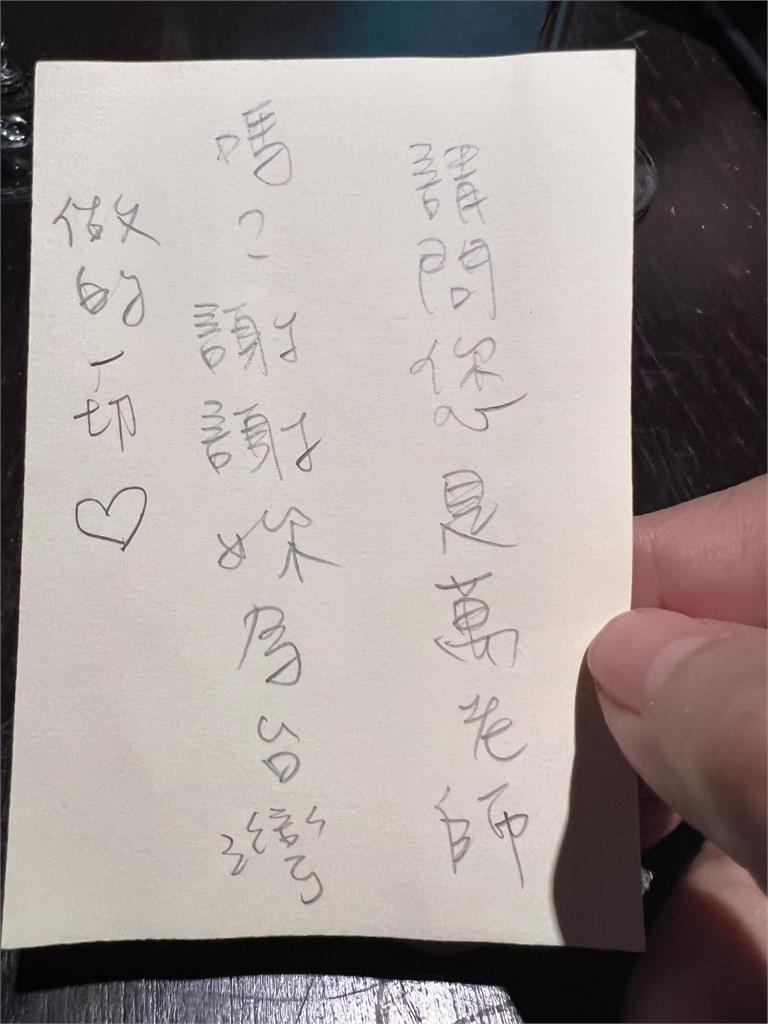 請問您是萬老師
嗎？謝謝妳為台灣
做的一切♡